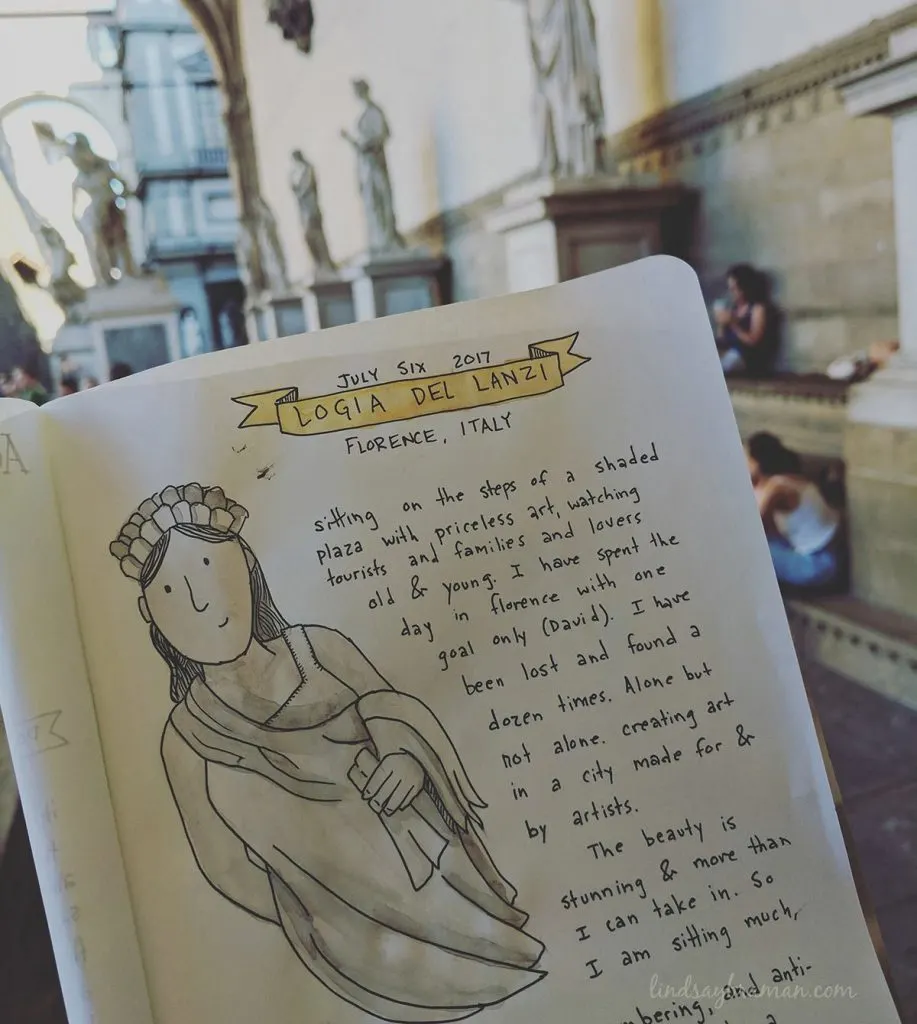 JULY SIX 2017
LOGIA DEL LANZI
FLORENCE, ITALY
sitting on the steps of a shaded
plaza with priceless art, watching
tourists and families and lovers
old & young. I have spent the
day in florence with one
goal only (David). I have
been lost and found a
dozen times. Alone but
not alone. creating art
in a city made for &
by artists.
The beauty is
stunning & more than
I can take in. So
I am sitting much,
and anti-
lindsaybraman.com